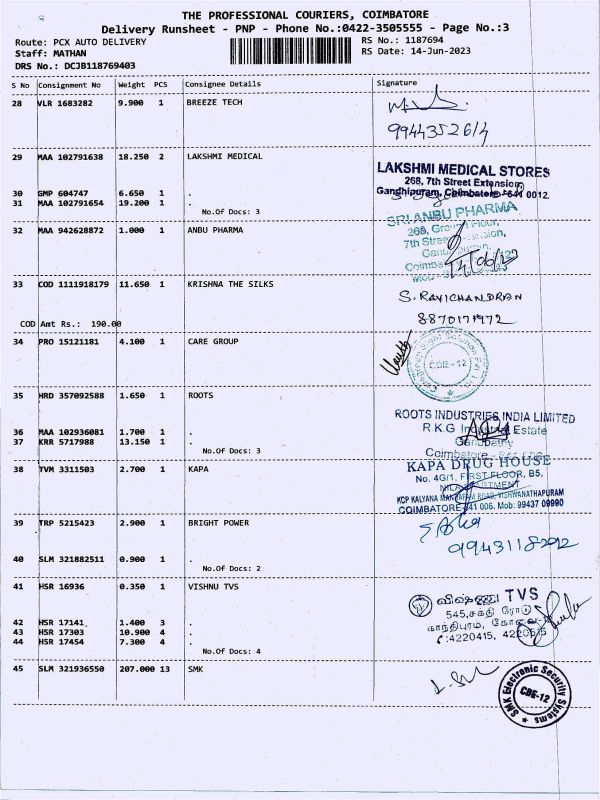 THE PROFESSIONAL COURIERS, COIMBATORE
Delivery Runsheet - PNP - Phone No.:0422-3505555 - Page No.:3
Route: PCX AUTO DELIVERY RS No.: 1187694
Staff: MATHAN RS Date: 14-Jun-2023
DRS No.: DCJB118769403
S No Consignment No Weight PCS Consignee Details Signature
28 VLR 1683282 9.900 1 BREEZE TECH
9944352614
29 MAA 102791638 18.250 2 LAKSHMI MEDICAL
LAKSHMI MEDICAL STORES
268, 7th Street Extension,
30 GMP 604747 6.650 1 . Gandhipuram, Coimbatore - 641 0012
31 MAA 102791654 19.200 1 .
No.Of Docs: 3
SRI ANBU PHARMA
32 MAA 942628872 1.000 1 ANBU PHARMA
268, Ground Floor,
7th Street Extension,
33 COD 1111918179 11.650 1 KRISHNA THE SILKS
S. RAVICHANDRAN
8870171972
COD Amt Rs.: 190.00
34 PRO 15121181 4.100 1 CARE GROUP
CBE-12
35 HRD 357092588 1.650 1 ROOTS
ROOTS INDUSTRIES INDIA LIMITED
R.K.G Industrial Estate
36 MAA 102936081 1.700 1 .
Ganapathy
37 KRR 5717988 13.150 1 .
No.Of Docs: 3
Coimbatore
38 TVM 3311503 2.700 1 KAPA
KAPA DRUG HOUSE
No. 4G/1, FIRST FLOOR, B5,
KCP KALYANA MANDAPAM ROAD, VISHWANATHAPURAM
COIMBATORE-641 006. Mob: 99437 09990
39 TRP 5215423 2.900 1 BRIGHT POWER
40 SLM 321882511 0.900 1 .
No.Of Docs: 2
41 HSR 16936 0.350 1 VISHNU TVS
விஷ்ணு TVS
545,சக்தி ரோடு
42 HSR 17141 1.400 3 .
43 HSR 17303 10.900 4 .
44 HSR 17454 7.300 4 .
No.Of Docs: 4
45 SLM 321936550 207.000 13 SMK
SMK Electronic Security Systems
CBE-12